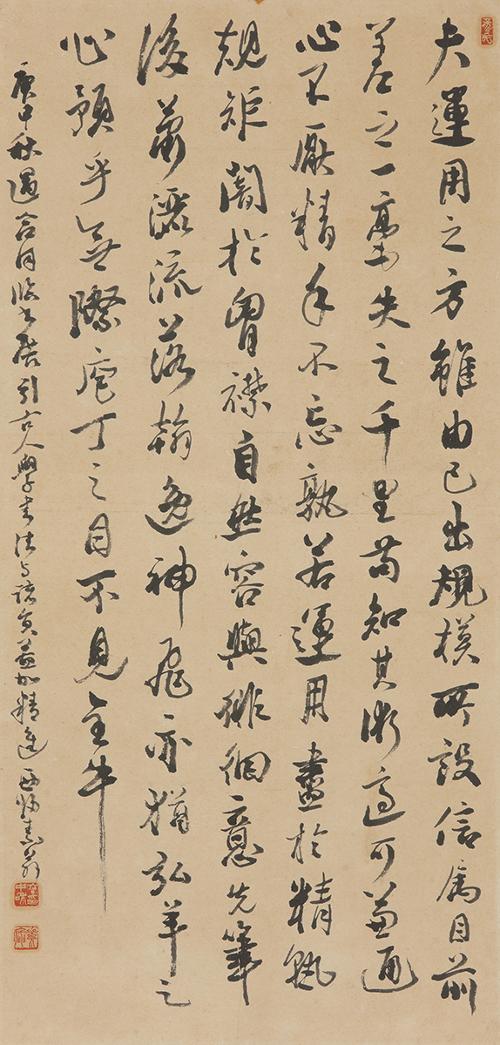 夫運用之方雖由己出規模所設信屬目前
差之一毫失之千里苟知其術適可兼通
心不厭精手不忘熟若運用盡於精熟
規矩闇於胷襟自然容與徘徊意先筆
後蕭灑流落翰逸神飛亦猶弘羊之
心預乎無際庖丁之目不見全牛
庚申秋 引古人學書法与諸 益加精進